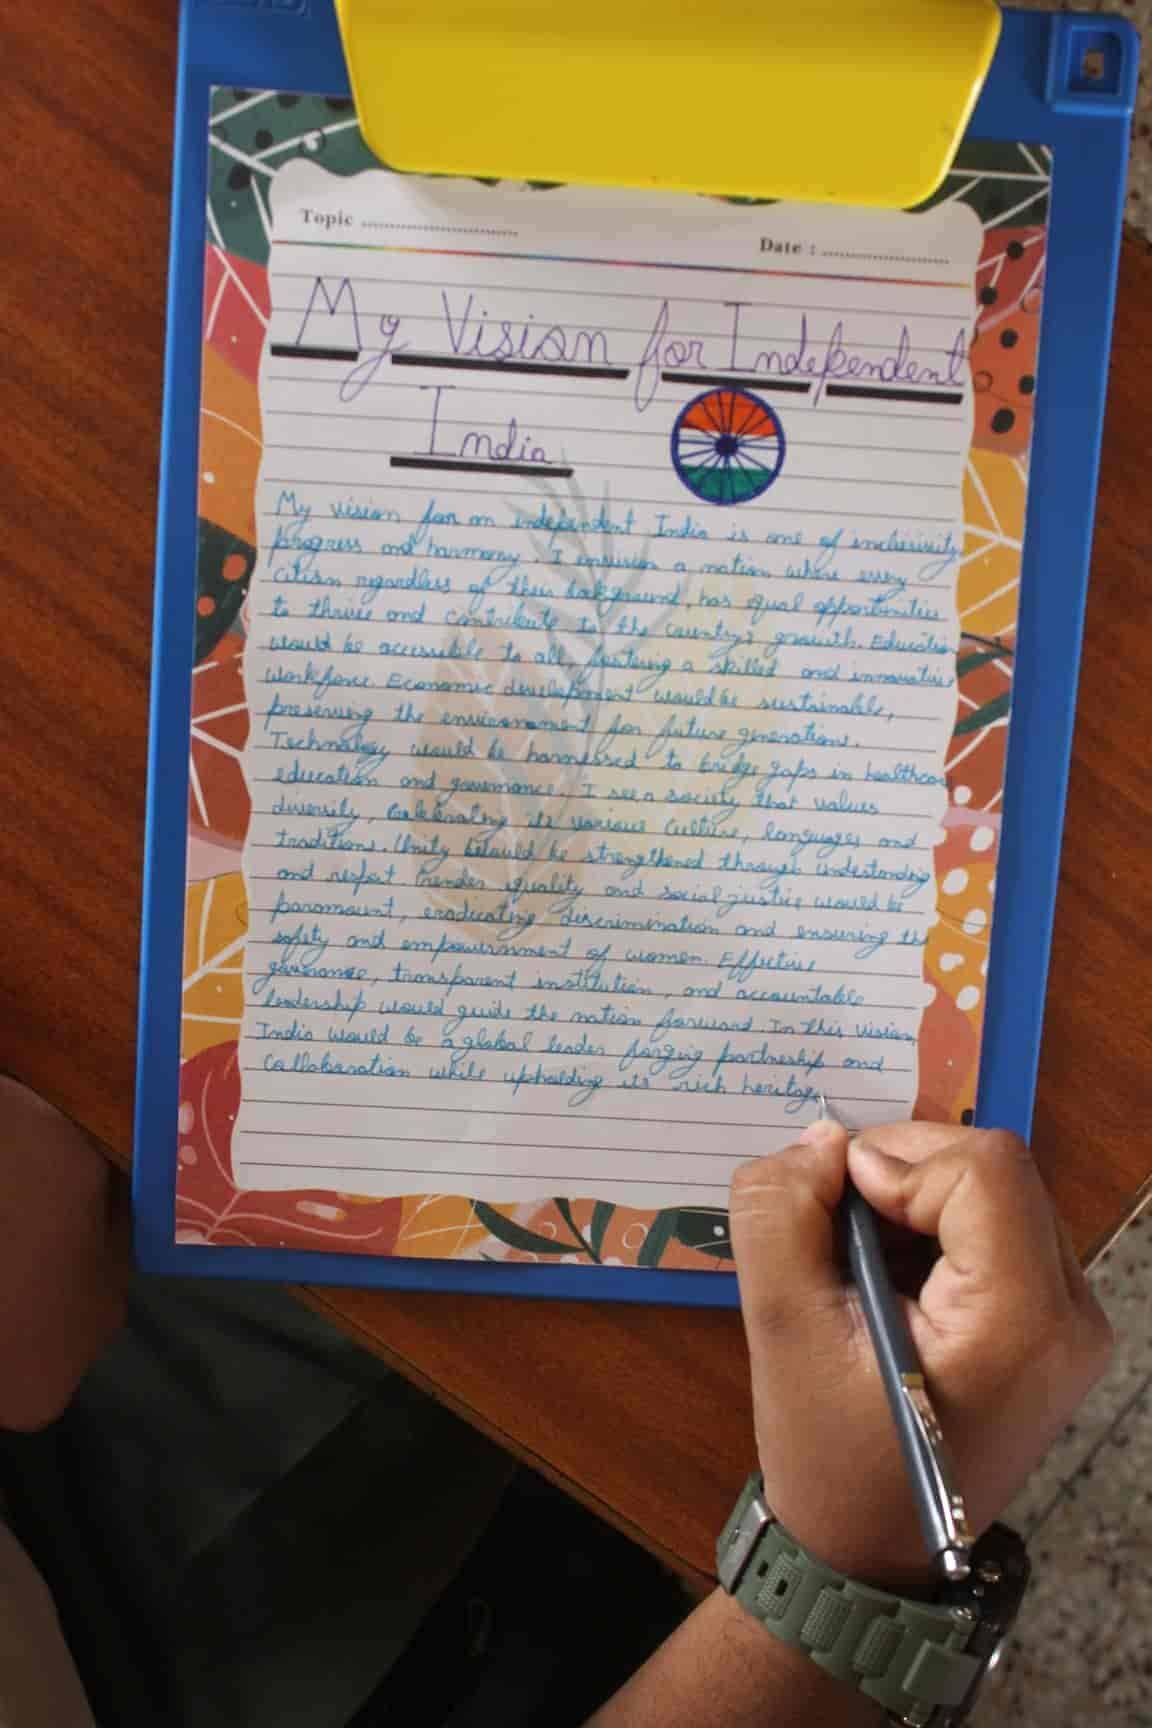 Topic ..............................
Date : ........................
My Vision for Independent
India
My vision for an independent India is one of inclusivity,
progress and harmony. I envision a nation where every
citizen regardless of their background, has equal opportunities
to thrive and contribute to the country's growth. Education
would be accessible to all, fostering a skilled and innovative
workforce. Economic development would be sustainable,
preserving the environment for future generations.
Technology would be harnessed to bridge gaps in healthcare
education and governance. I see a society that values
diversity, celebrating its various culture, languages and
traditions. Unity would be strengthened through understanding
and respect. Gender equality and social justice would be
paramount, eradicating discrimination and ensuring the
safety and empowerment of women. Effective
governance, transparent institution, and accountable
leadership would guide the nation forward. In this vision,
India would be a global leader forging partnership and
collaboration while upholding its rich heritage